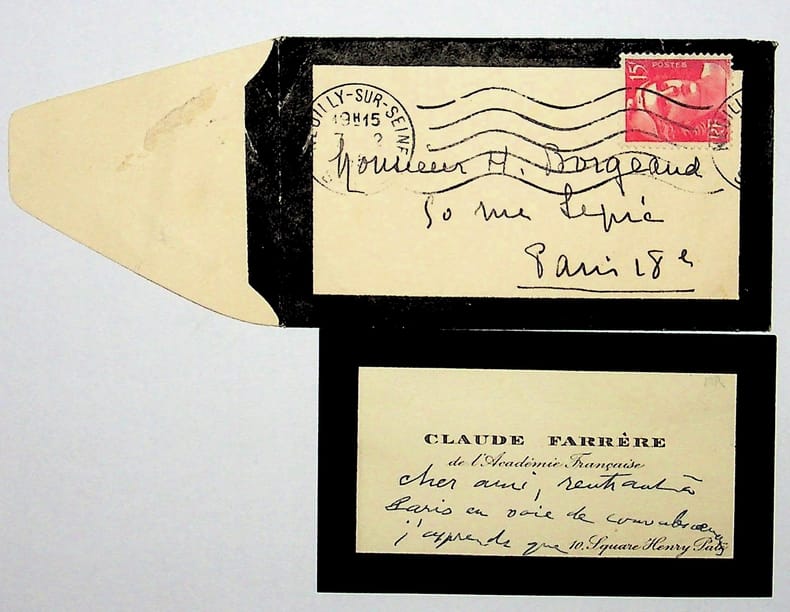 NEUILLY-SUR-SEINE
19H15
7 2
POSTES
15F
NEUILLY
Monsieur H. Borgeaud
50 rue Lepic
Paris 18e
CLAUDE FARRÈRE
de l'Académie Française
cher ami, rentrant à
Paris en voie de convalescence
j'apprends que
10, Square Henry Paté